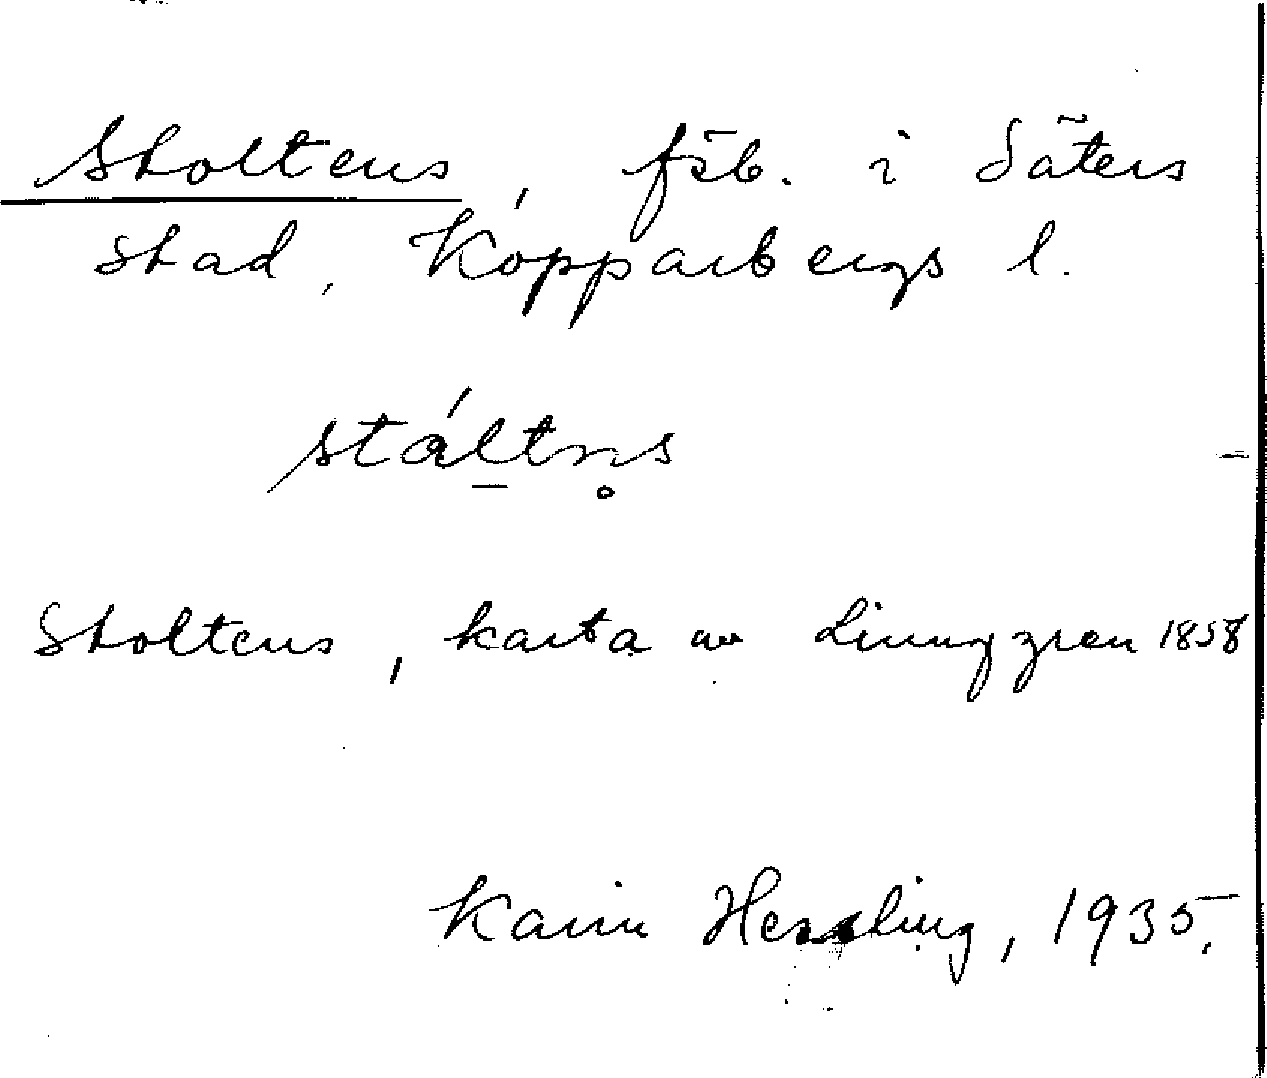 Stoltens, fäb. i Säters
stad, Kopparbergs l.
stáltn̥s
Stoltens, karta av Ljunggren 1858
Karin Hessling, 1935.